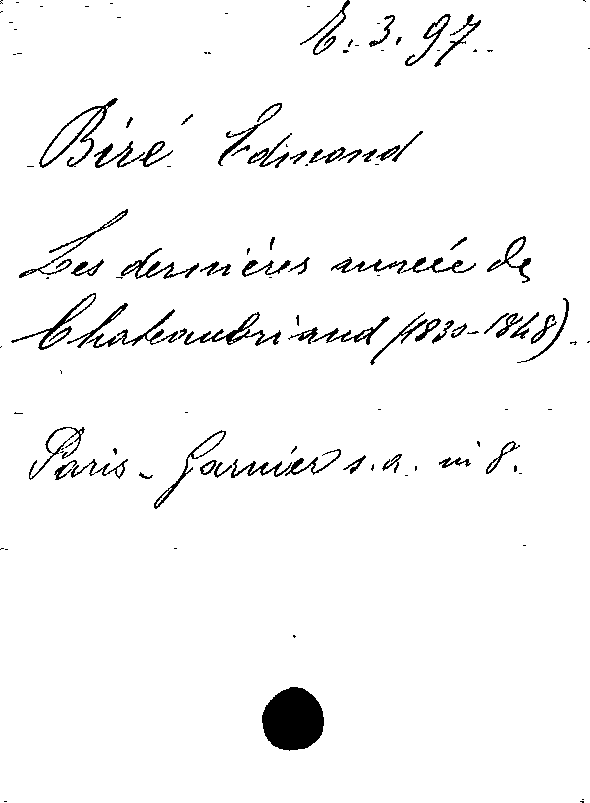 E. 3. 97.
Biré Edmond
Les dernières année de
Chateaubriand (1830-1848)
Paris - Garnier s.a. in 8.